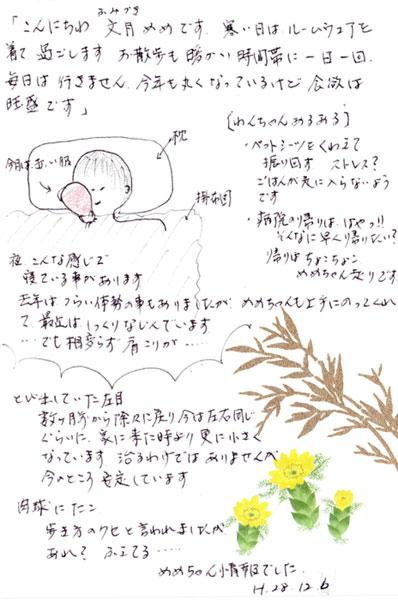 ふみづき
「こんにちわ 文月めめです. 寒い日は ルームウェアを
着て 過ごします お散歩も 暖かい 時間帯に 一日一回.
毎日は 行きません. 今年も丸くなっているけど 食欲は
旺盛です」
[わんちゃんあるある]
・ペットシーツをくわえて
振り回す ストレス?
ごはんが気に入らないよう
です
・病院の帰りは はやっ!!
そんなに早く帰りたい?
帰りは ちょこちょこ
めめちゃん走りです.
枕
今日は赤い服
掛布団
夜 こんな感じで
寝ている事があります
去年は つらい体勢の事もありましたが、めめちゃんも上手にのってくれ
て、最近は しっくりなじんでいます
… でも相変らず 肩こりが ……
とび出していた左目
数ヶ月前から徐々に戻り 今は左右同じ
ぐらいに. 家に来た時より 更に小さく
なっています 治るわけでは ありませんが
今のところ 安定しています
肉球にたこ
歩き方のクセと言われましたが
あれ? ふえてる ……
めめちゃん情報でした.
H.28.12.6